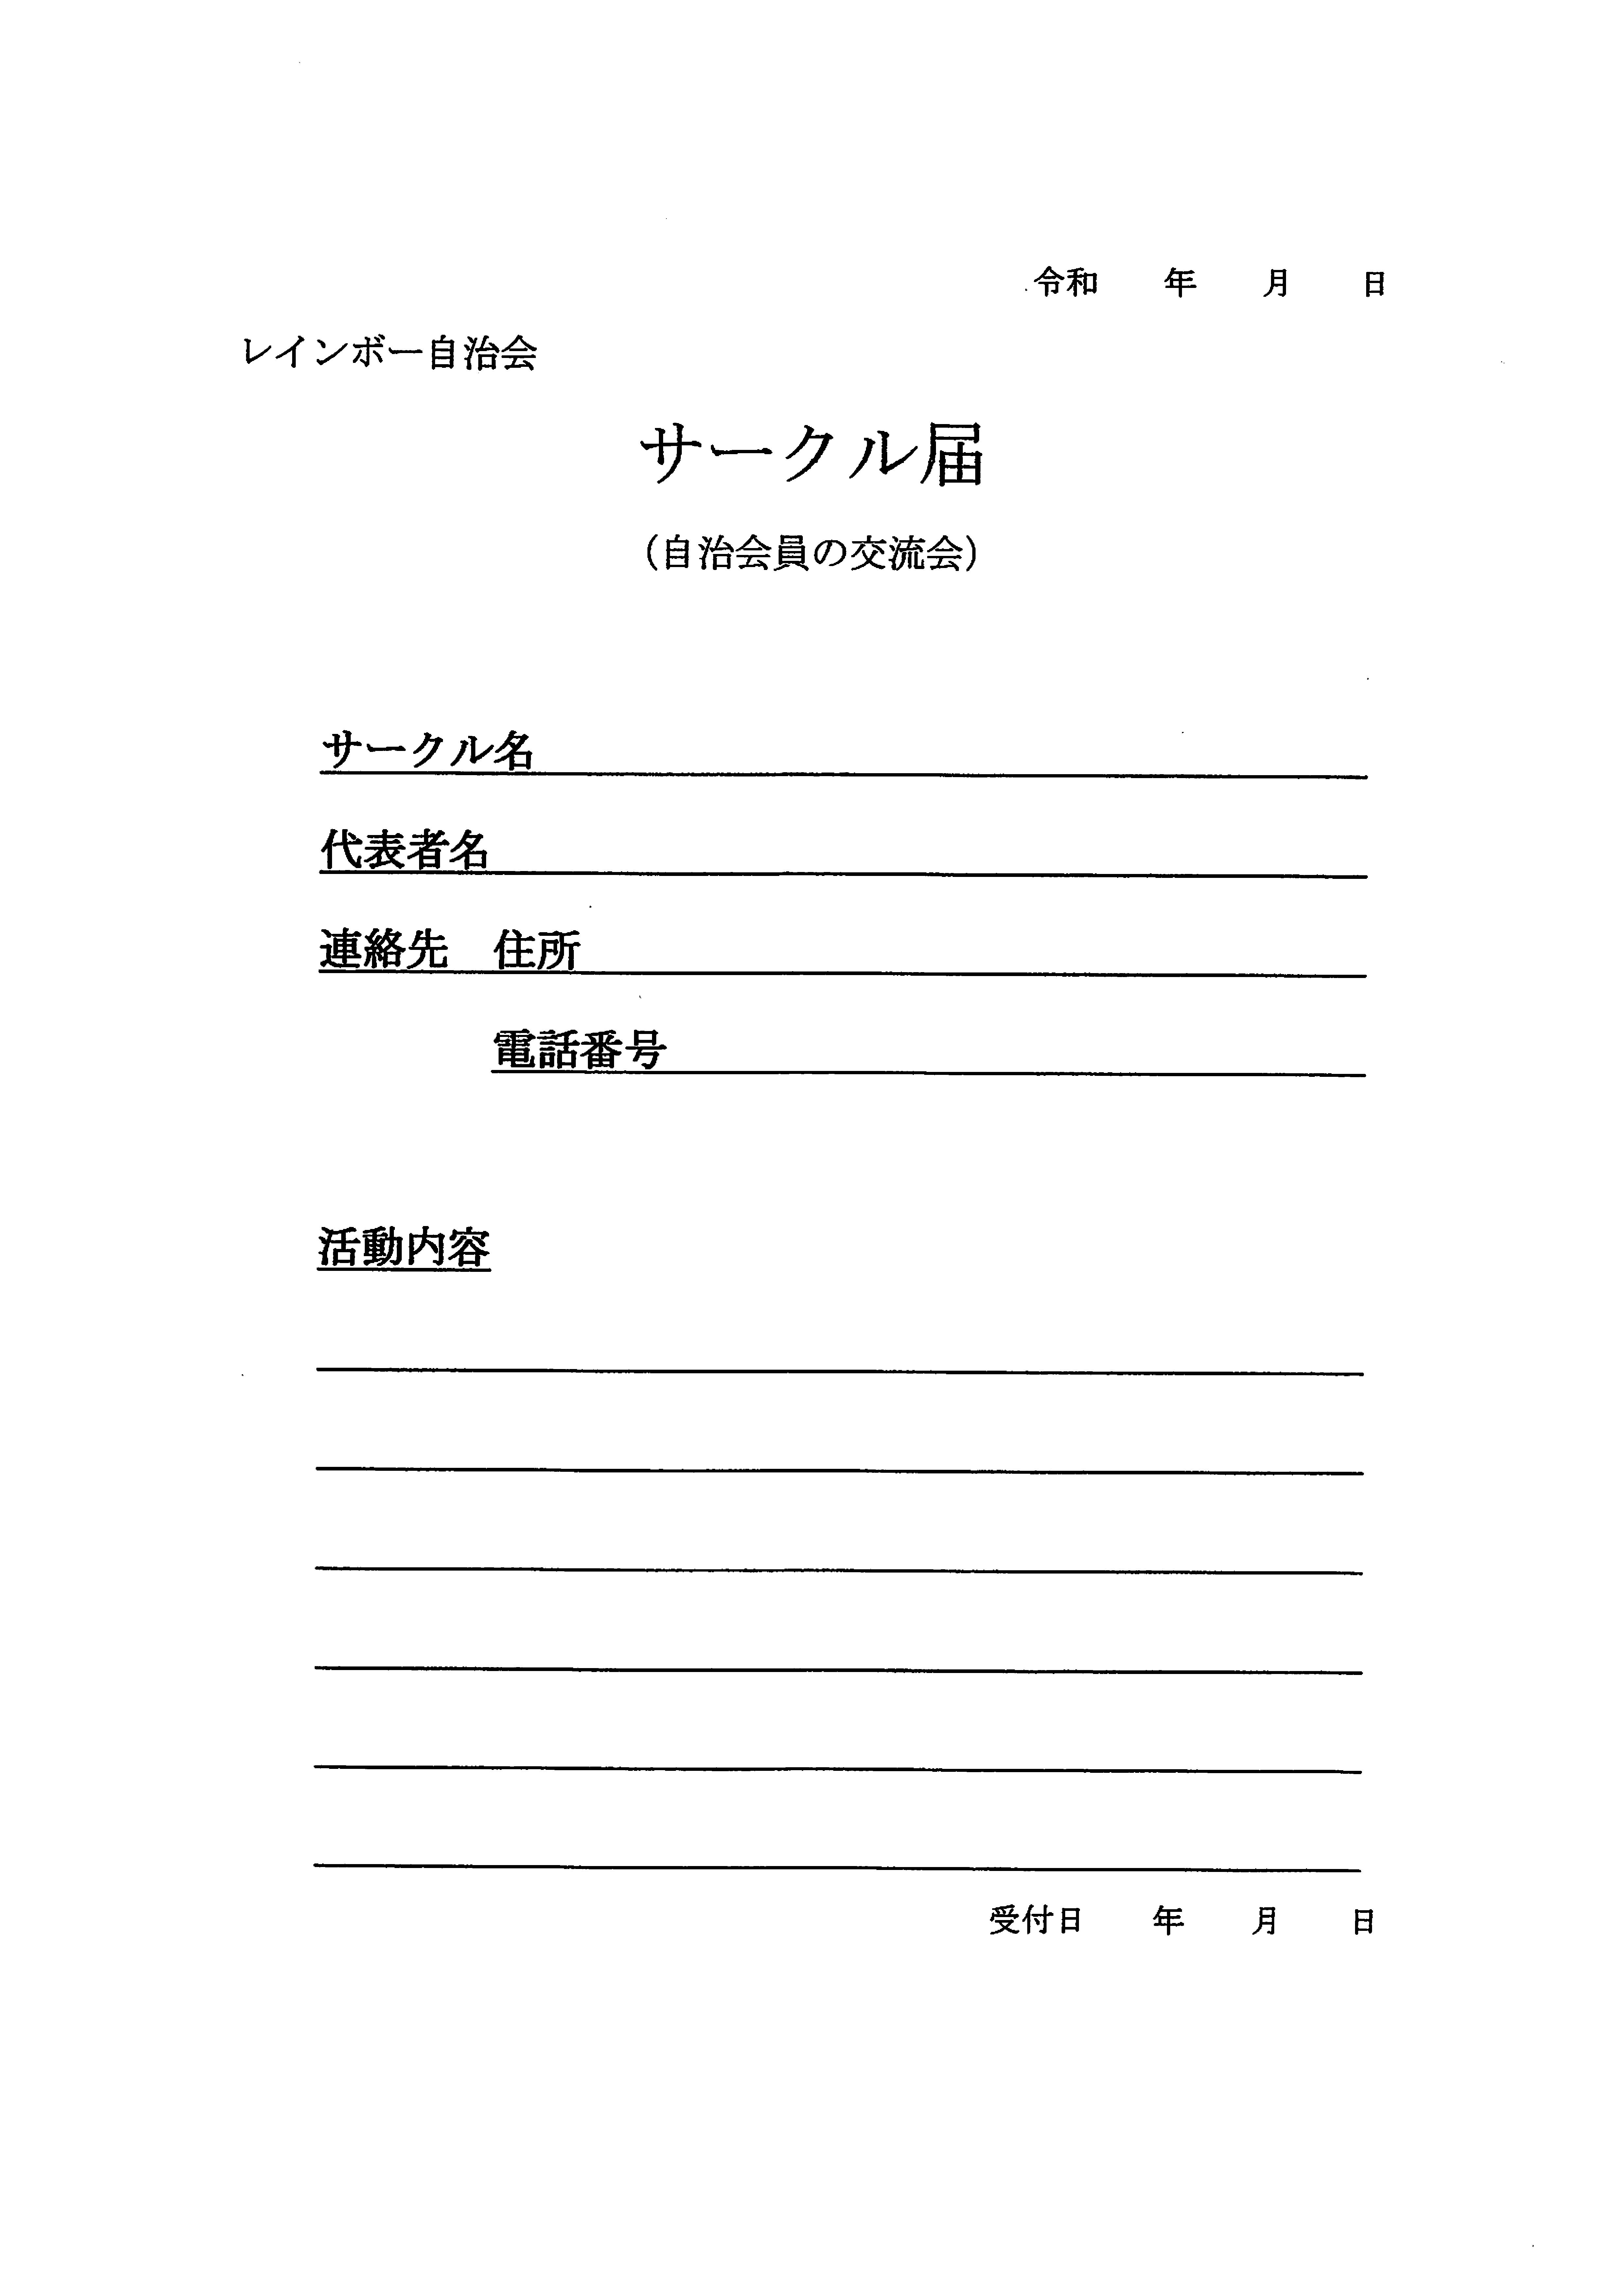 令和　　年　　月　　日
レインボー自治会
サークル届
（自治会員の交流会）
サークル名
代表者名
連絡先　住所
電話番号
活動内容
受付日　　年　　月　　日